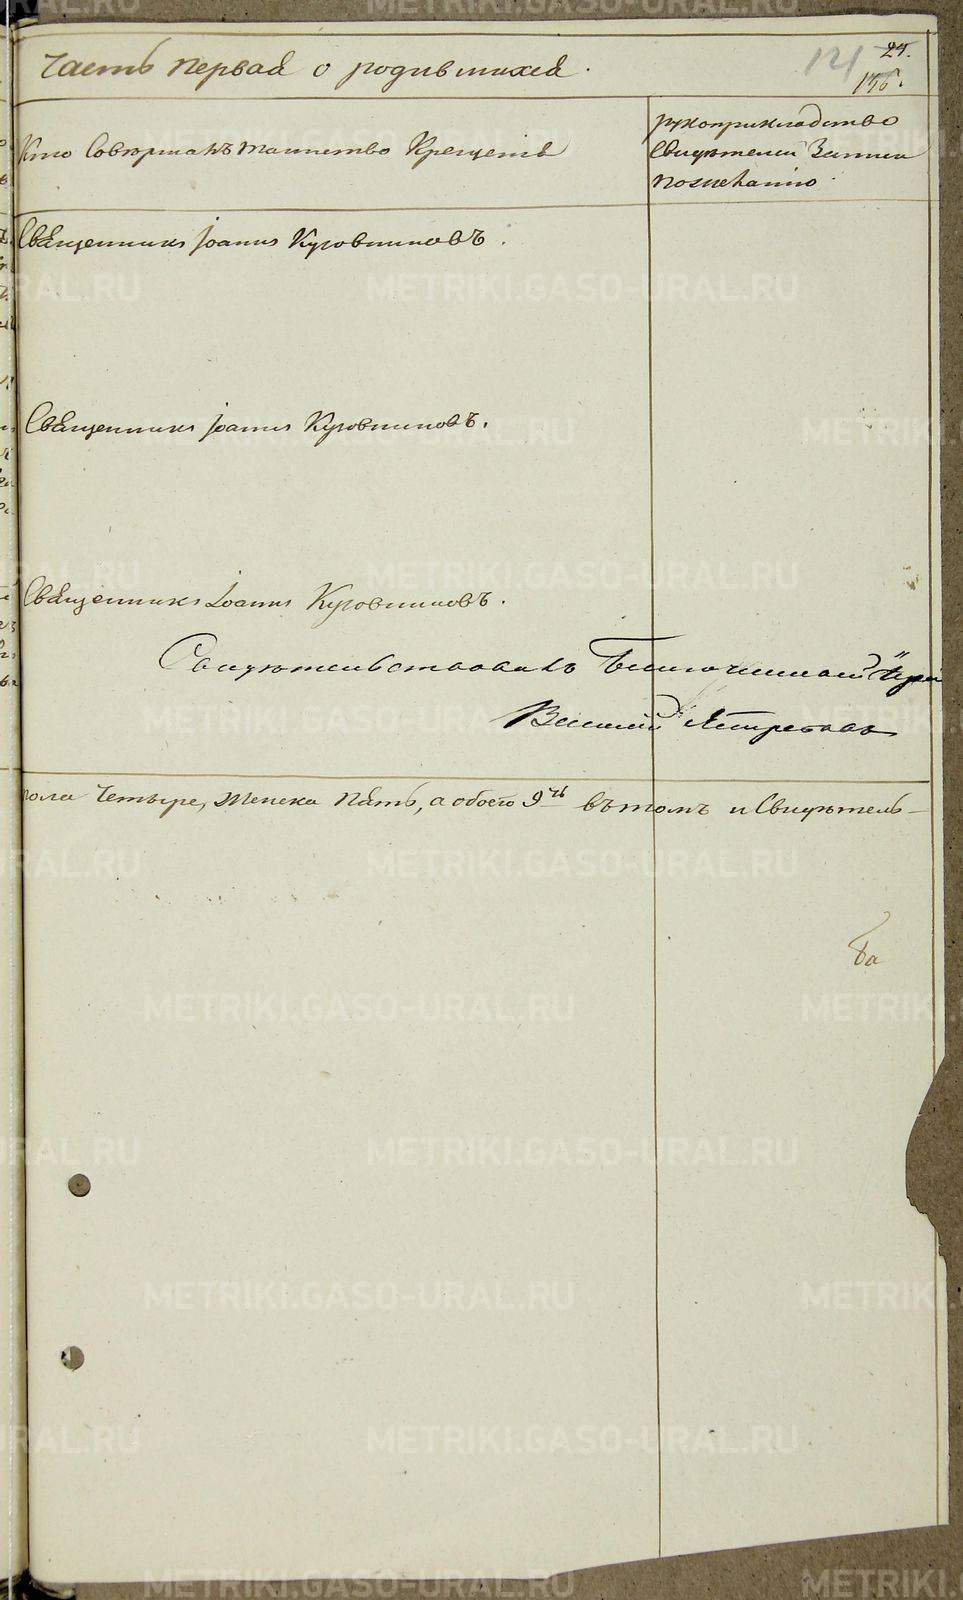 Часть первая о родившихся.
121
24.
Кто Совершалъ таинство Крещенія
рукоприкладство
Свидетелей Записи
пожеланію
Священникъ Іоаннъ Куровниковъ.
Священникъ Іоаннъ Куровниковъ.
Священникъ Іоаннъ Куровниковъ.
Свидетельствовалъ Благочинный
Василий
пола Четыре, Женска Пять, а обоего 9ть въ томъ и Свидетель-
METRIKI.GASO-URAL.RU